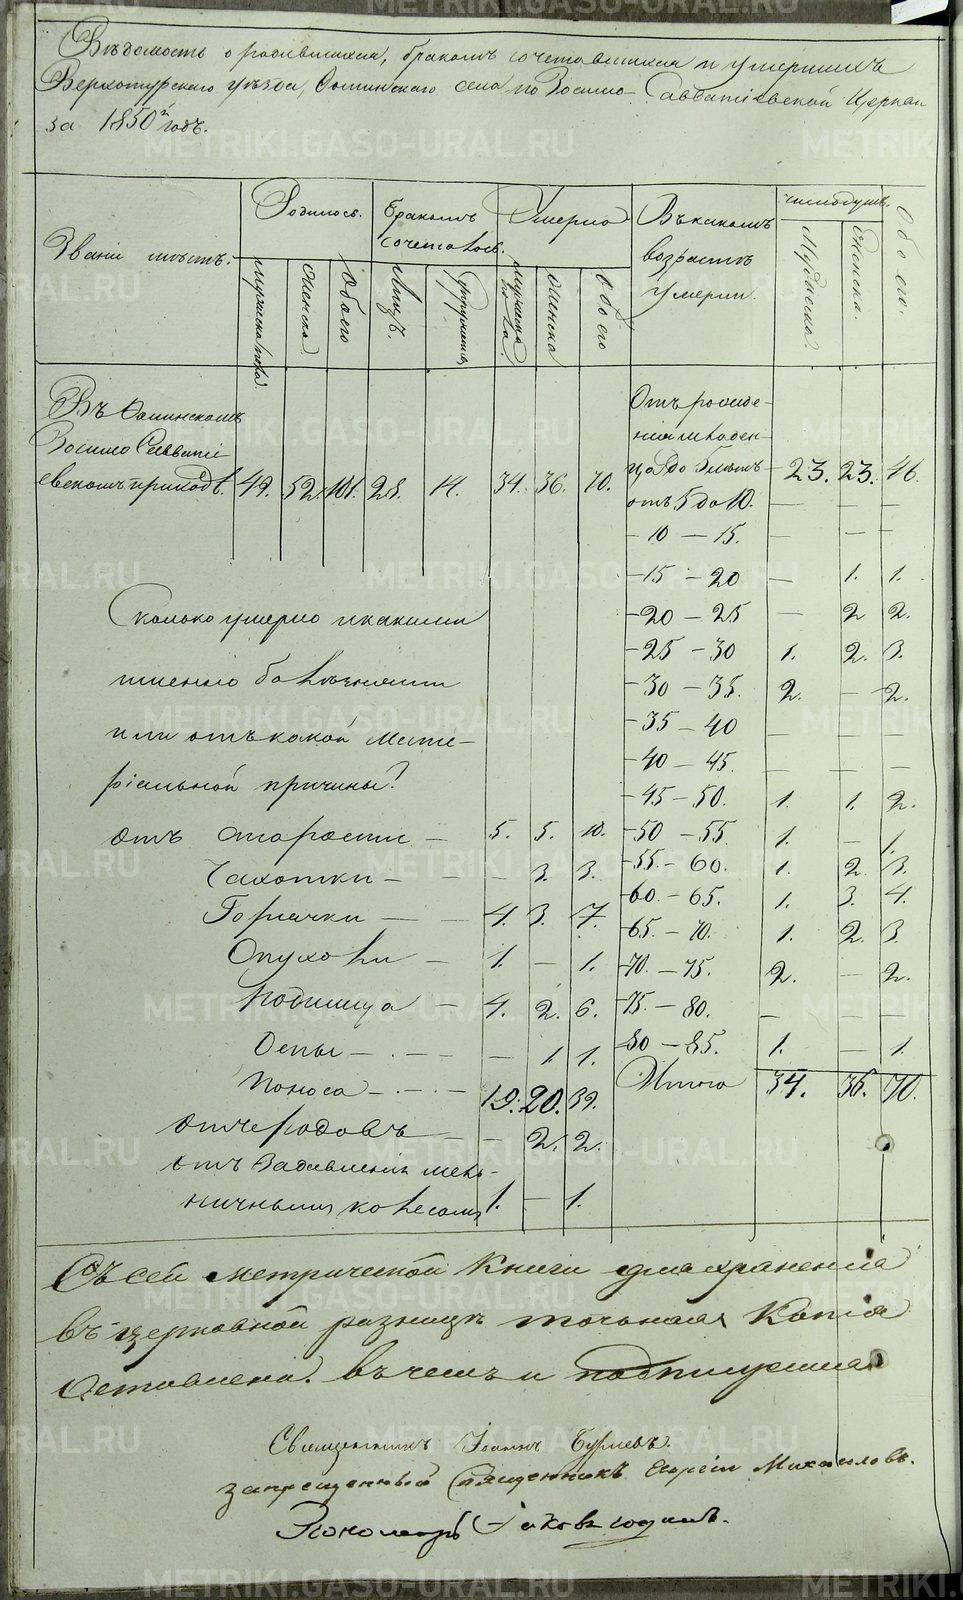 Вѣдомость о родившихся, бракомъ сочетавшихся и умершихъ
Верхотурскаго уѣзда, Фоминскаго села по Зосимо-Савватіевской Церкви
за 1850й годъ.
Званіе мѣстъ.
Родилось.
Бракомъ сочеталось.
Умерло
Въ какомъ возрастѣ умерли.
число душъ.
Обоего.
мужеска пола
женска
Обоего
Лицъ.
Супружествъ
мужеска пола.
женска
обоего
Мужеска.
Женска.
Въ Фоминскомъ
Зосимо Савватіевскомъ приходѣ. 49. 52. 101. 28. 14. 34. 36. 70.
Отъ рожденія младенца до 5 лѣтъ 23. 23. 46.
отъ 5 до 10. — — —
— 10 — 15. — — —
— 15 — 20 — 1. 1.
— 20 — 25 — 2 2.
— 25 — 30 1. 2. 3.
— 30 — 35. 2. — 2.
— 35 — 40 — — —
— 40 — 45. — — —
— 45 — 50. 1. 1. 2.
— 50 — 55 1. — 1.
— 55 — 60. 1. 2. 3.
— 60 — 65. 1. 3. 4.
— 65. — 70. 1. 2. 3.
— 70. — 75. 2. — 2.
— 75. — 80. — — —
— 80 — 85. 1. — 1.
Итого 34. 36. 70.
Сколько умерло и какими
именно болѣзнями
или отъ какой Мате-
ріальной причины?
отъ старости — 5. 5. 10.
Чахотки — — — 3. 3.
Горячки — — 4. 3. 7.
Опухоли — 1. — 1.
Родимца — 4. 2. 6.
Оспы — — — 1 1.
Поноса — — 19. 20. 39.
отъ родовъ — — 2. 2.
отъ задавленія мель-
ничнымъ колесомъ 1. — 1.
Съ сей метрической Книги для храненія
въ церковной ризницѣ точная Копія
Оставлена. въ чемъ и подпишемся
Священникъ Іоаннъ Бурцевъ.
запрещенный Священникъ Георгій Михайловъ.
Пономарь Іаковъ
METRIKI.GASO-URAL.RU